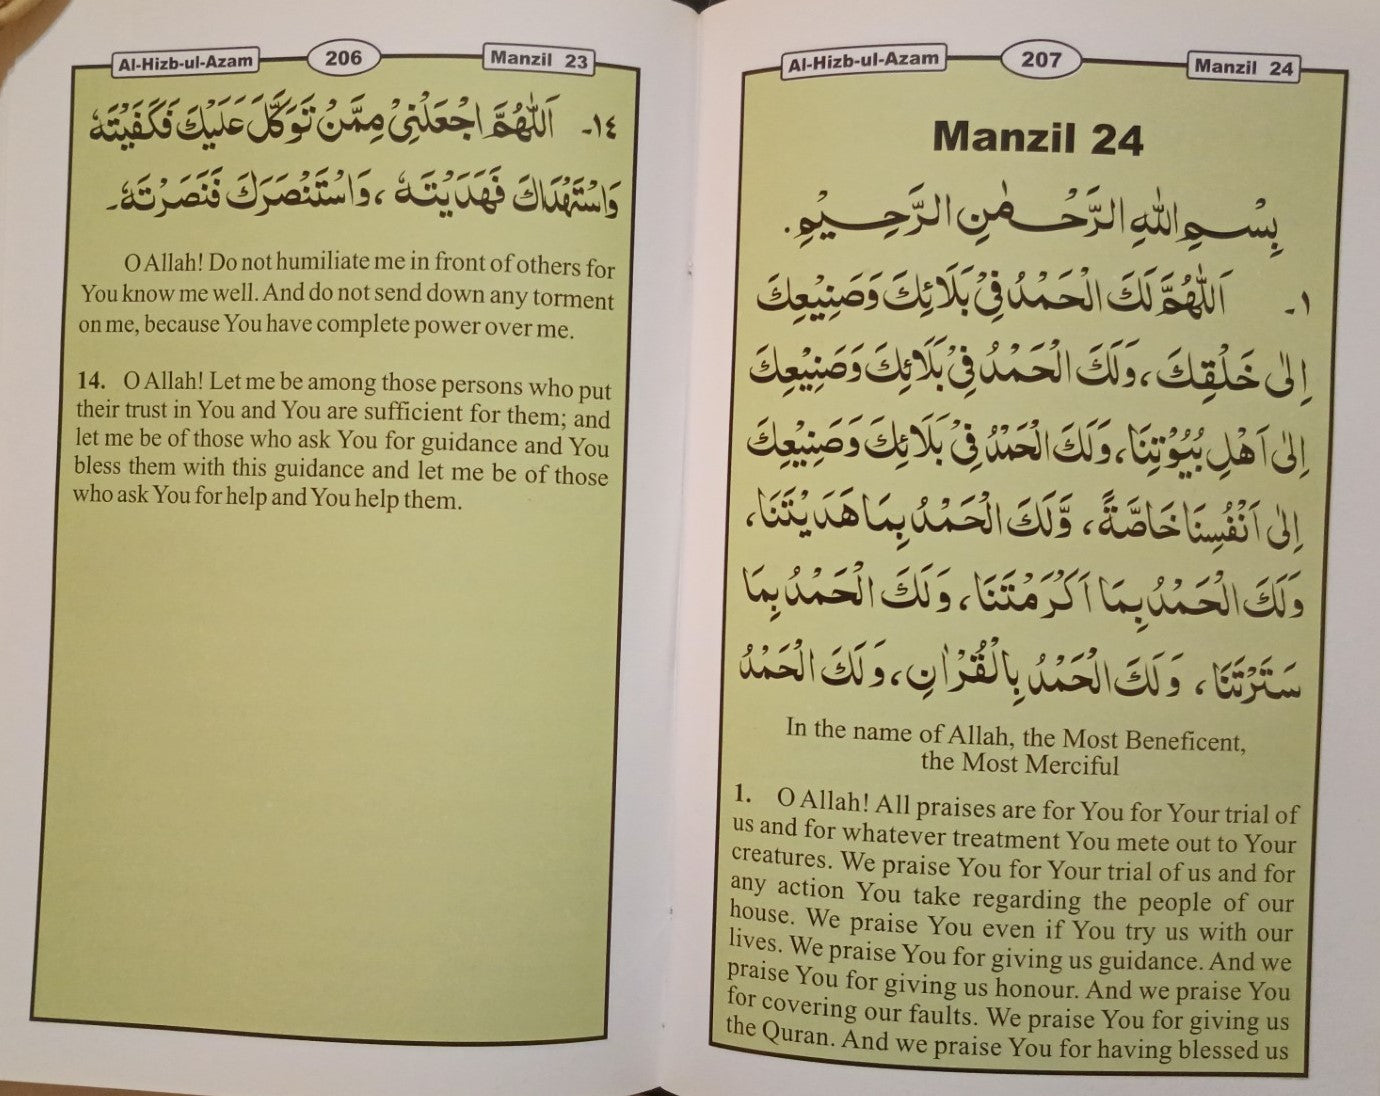 Al-Hizb-ul-Azam 206 Manzil 23
١٤۔ اَللّٰهُمَّ اجْعَلْنِيْ مِمَّنْ تَوَكَّلَ عَلَيْكَ فَكَفَيْتَهٗ
وَاسْتَهْدَاكَ فَهَدَيْتَهٗ ، وَاسْتَنْصَرَكَ فَنَصَرْتَهٗ۔
O Allah! Do not humiliate me in front of others for
You know me well. And do not send down any torment
on me, because You have complete power over me.
14. O Allah! Let me be among those persons who put
their trust in You and You are sufficient for them; and
let me be of those who ask You for guidance and You
bless them with this guidance and let me be of those
who ask You for help and You help them.
Al-Hizb-ul-Azam 207 Manzil 24
Manzil 24
بِسْمِ اللّٰهِ الرَّحْمٰنِ الرَّحِيْمِ.
١۔ اَللّٰهُمَّ لَكَ الْحَمْدُ فِيْ بَلَائِكَ وَصَنِيْعِكَ
اِلٰى خَلْقِكَ ، وَلَكَ الْحَمْدُ فِيْ بَلَائِكَ وَصَنِيْعِكَ
اِلٰى اَهْلِ بُيُوْتِنَا ، وَلَكَ الْحَمْدُ فِيْ بَلَائِكَ وَصَنِيْعِكَ
اِلٰى اَنْفُسِنَا خَاصَّةً ، وَّلَكَ الْحَمْدُ بِمَا هَدَيْتَنَا ،
وَلَكَ الْحَمْدُ بِمَا اَكْرَمْتَنَا ، وَلَكَ الْحَمْدُ بِمَا
سَتَرْتَنَا ، وَلَكَ الْحَمْدُ بِالْقُرْاٰنِ ، وَلَكَ الْحَمْدُ
In the name of Allah, the Most Beneficent,
the Most Merciful
1. O Allah! All praises are for You for Your trial of
us and for whatever treatment You mete out to Your
creatures. We praise You for Your trial of us and for
any action You take regarding the people of our
house. We praise You even if You try us with our
lives. We praise You for giving us guidance. And we
praise You for giving us honour. And we praise You
for covering our faults. We praise You for giving us
the Quran. And we praise You for having blessed us